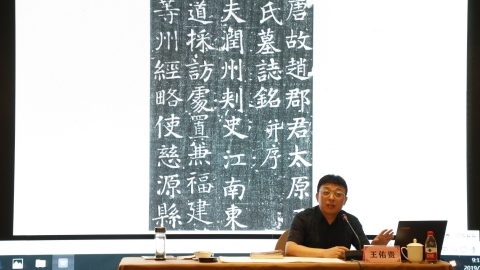 唐故趙郡君太原
氏墓誌銘并序
夫潤州刾史江南東
道採訪處置兼福建
等州經略使慈源縣
王佑
2019/